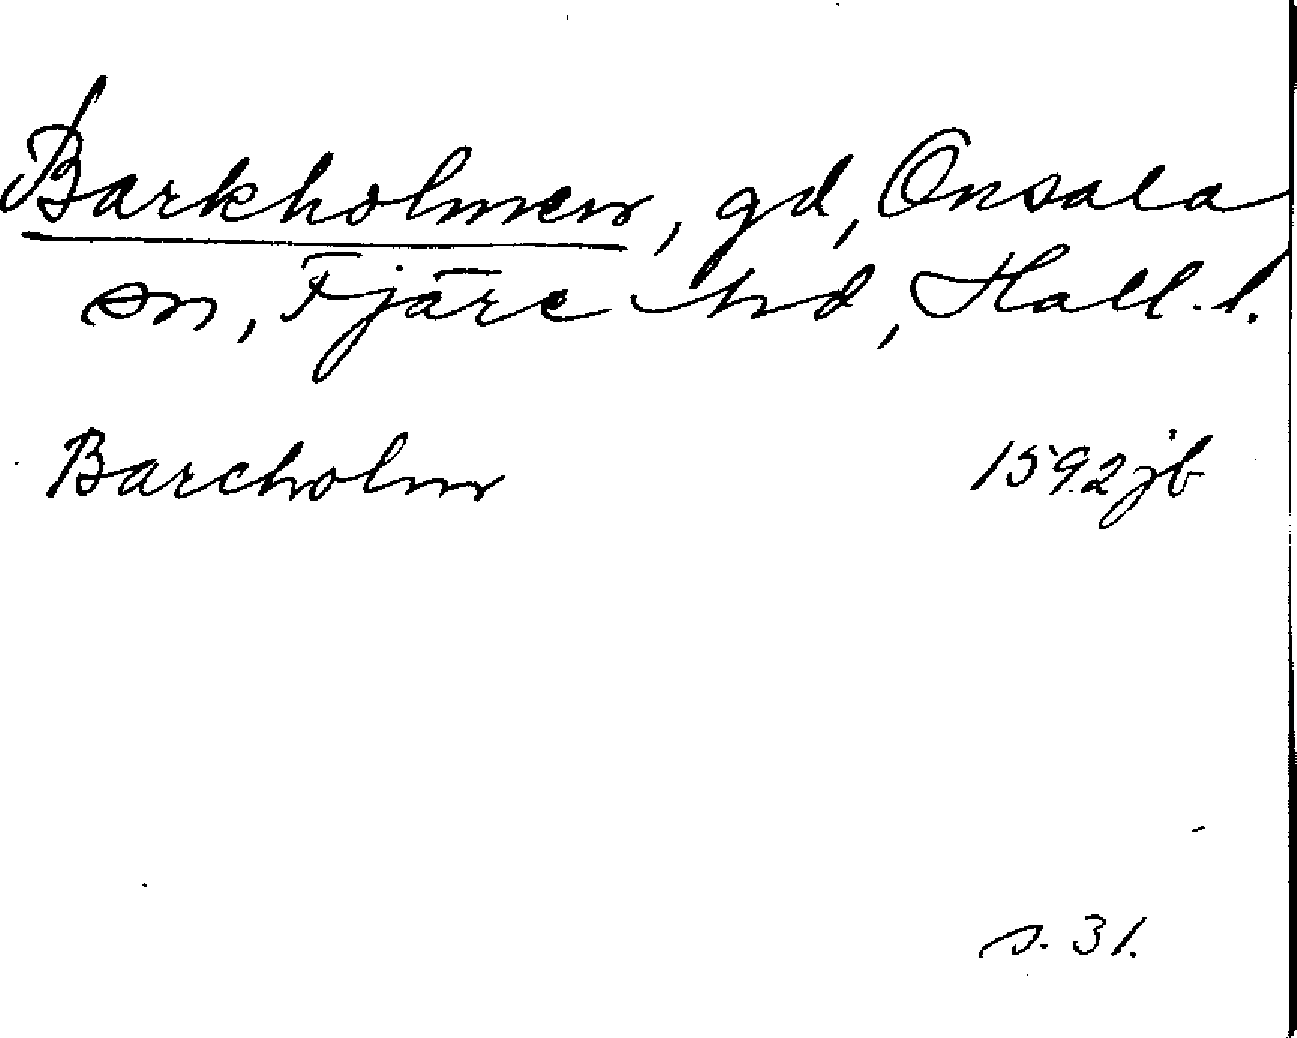 Barkholmen, gd, Onsala
sn, Fjäre hd, Hall. l.
Barcholm 1592 jb
s. 31.